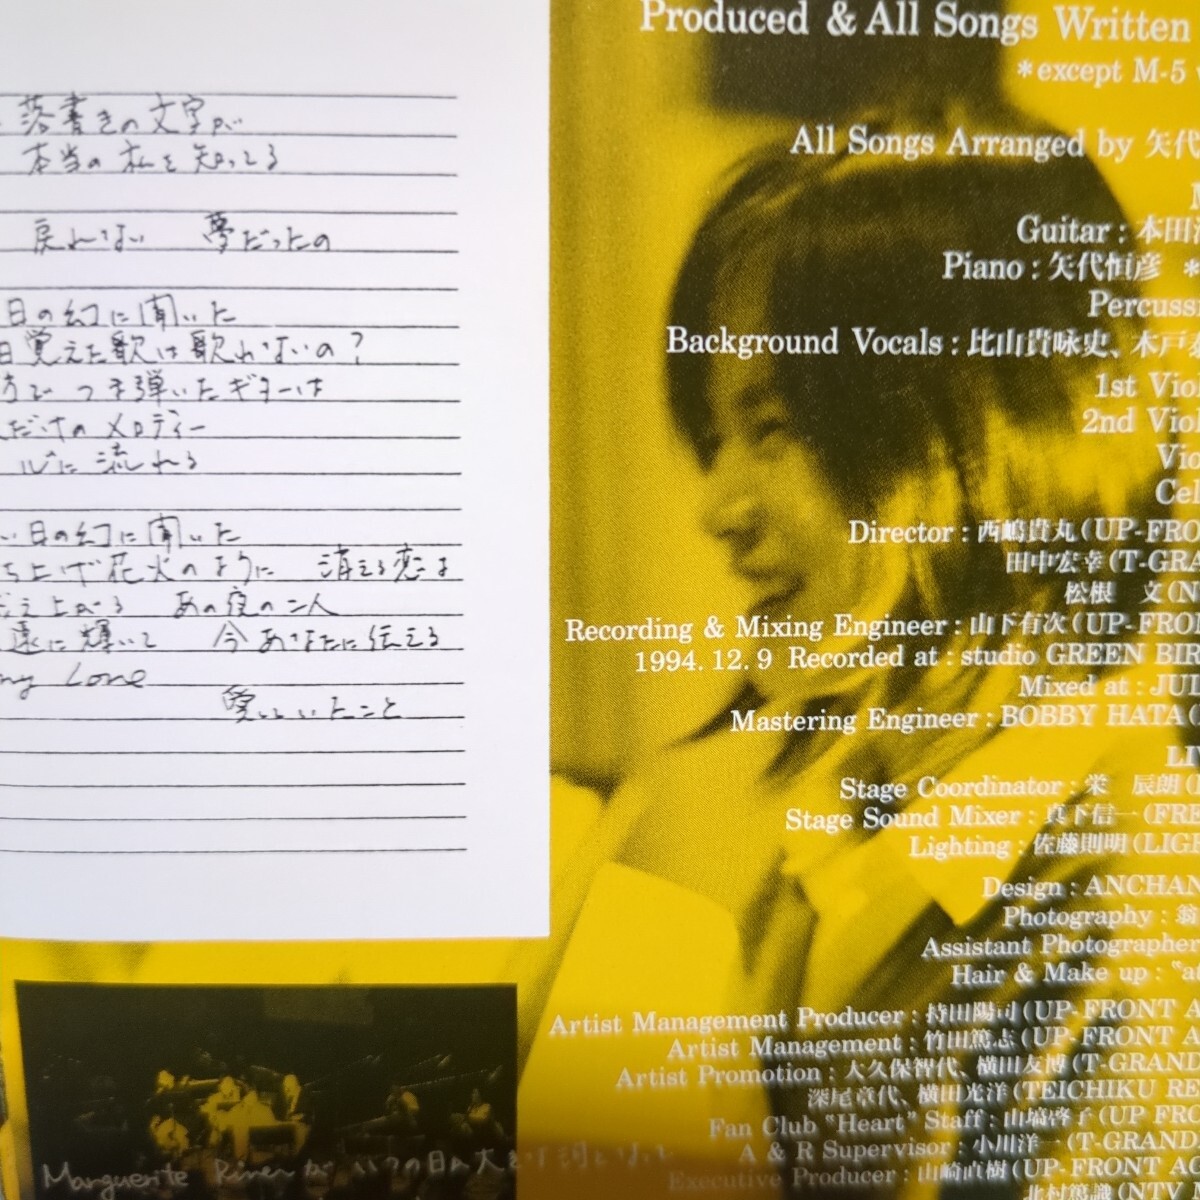 落書きの文字が
本当の私を知ってる
戻れない 夢だったの
日の幻に聞いた
覚えた歌は歌れないの?
つま弾いたギターは
だけのメロディー
心に流れる
い日の幻に聞いた
ち上げ花火のように 消える恋は
え上がる あの夜の二人
遠に輝いて 今あなたに伝える
my Love
愛していたこと
Produced & All Songs Written
*except M-5
All Songs Arranged by 矢代
Guitar : 本田
Piano : 矢代恒彦 *
Percuss
Background Vocals : 比山貴咏史、木戸
1st Viol
2nd Viol
Vio
Cel
Director : 西嶋貴丸 (UP-FRO
田中宏幸 (T-GRA
松根 文 (N
Recording & Mixing Engineer : 山下有次 (UP-FRON
1994. 12. 9 Recorded at : studio GREEN BIR
Mixed at : JU
Mastering Engineer : BOBBY HATA (
LI
Stage Coordinator : 栄 辰朗 (
Stage Sound Mixer : 真下信一 (FRE
Lighting : 佐藤則明 (LIGH
Design : ANCHAN
Photography : 翁
Assistant Photographer
Hair & Make up : "at
Artist Management Producer : 持田陽司 (UP-FRONT A
Artist Management : 竹田篤志 (UP-FRONT A
Artist Promotion : 大久保智代、横田友博 (T-GRAND
深尾章代、横田光洋 (TEICHIKU RE
Fan Club "Heart" Staff : 山塙啓子 (UP FRO
A & R Supervisor : 小川洋一 (T-GRAND
Executive Producer : 山崎直樹 (UP-FRONT AG
北村篤識 (NTV
Marguerite River が いつの日か大きな河に